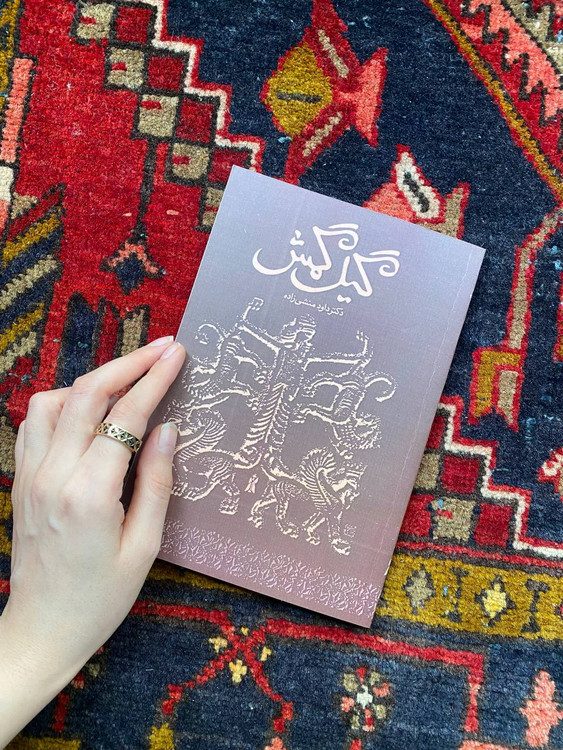 گیل گمش
دکتر داود منشی زاده